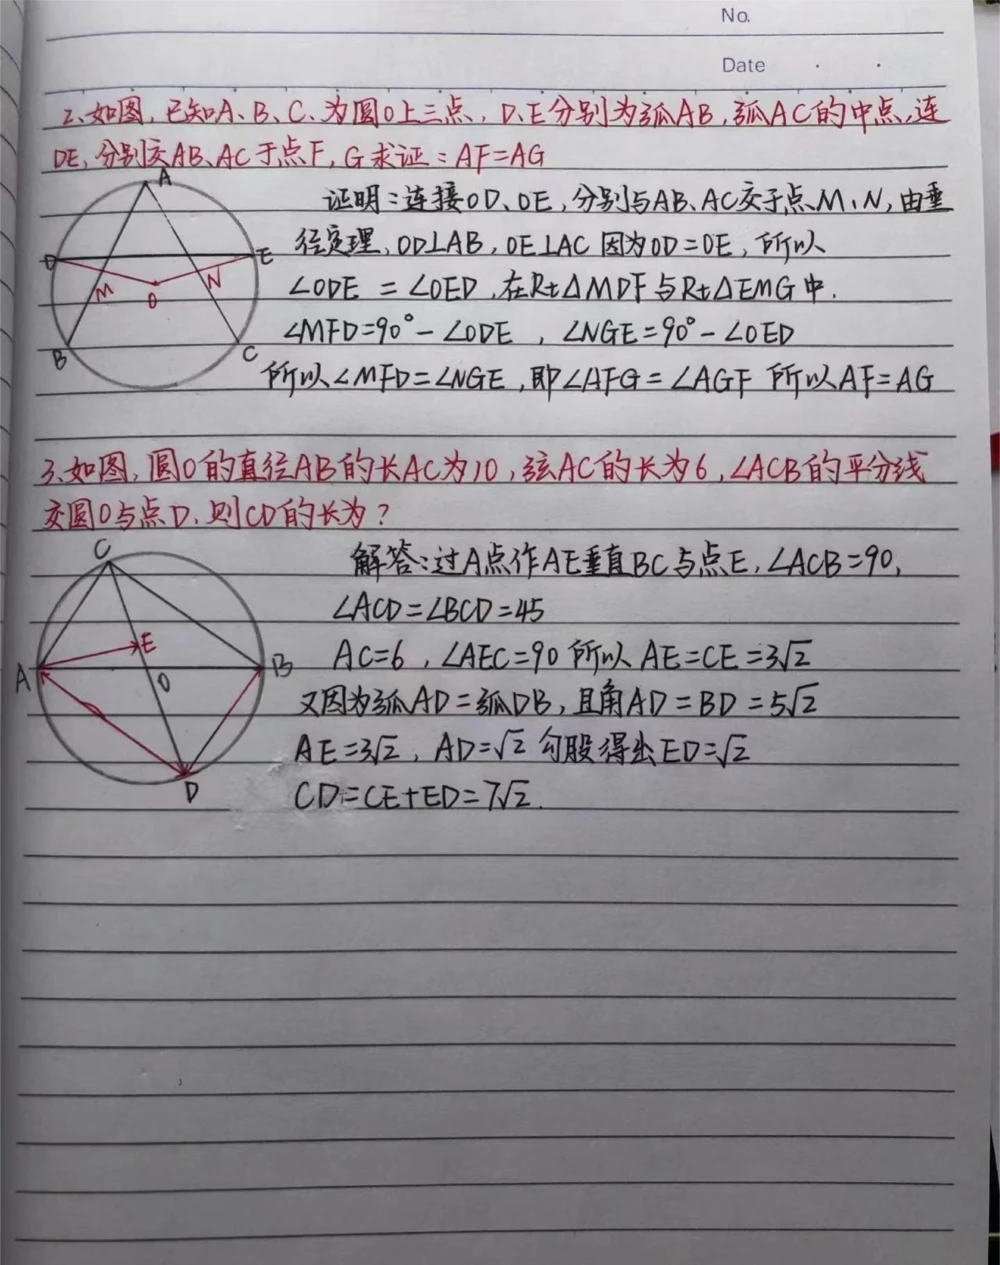 No.
Date
2.如图,已知A、B、C、为圆O上三点,D、E分别为弧AB,弧AC的中点,连
DE,分别交AB、AC于点F,G求证:AF=AG
A
证明:连接OD、OE,分别与AB、AC交于点M、N,由垂
径定理,OD⊥AB,OE⊥AC因为OD=OE,所以
D
E
M
O
N
∠ODE=∠OED,在Rt△MDF与Rt△EMG中.
∠MFD=90°-∠ODE,∠NGE=90°-∠OED
B
C
所以∠MFD=∠NGE,即∠AFG=∠AGF所以AF=AG
3.如图,圆O的直径AB的长AC为10,弦AC的长为6,∠ACB的平分线
交圆O与点D,则CD的长为?
C
解答:过A点作AE垂直BC与点E,∠ACB=90,
∠ACD=∠BCD=45
E
A
O
B
AC=6,∠AEC=90所以AE=CE=3√2
又因为弧AD=弧DB,且角AD=BD=5√2
AE=3√2,AD=√2勾股得出ED=√2
D
CD=CE+ED=7√2.